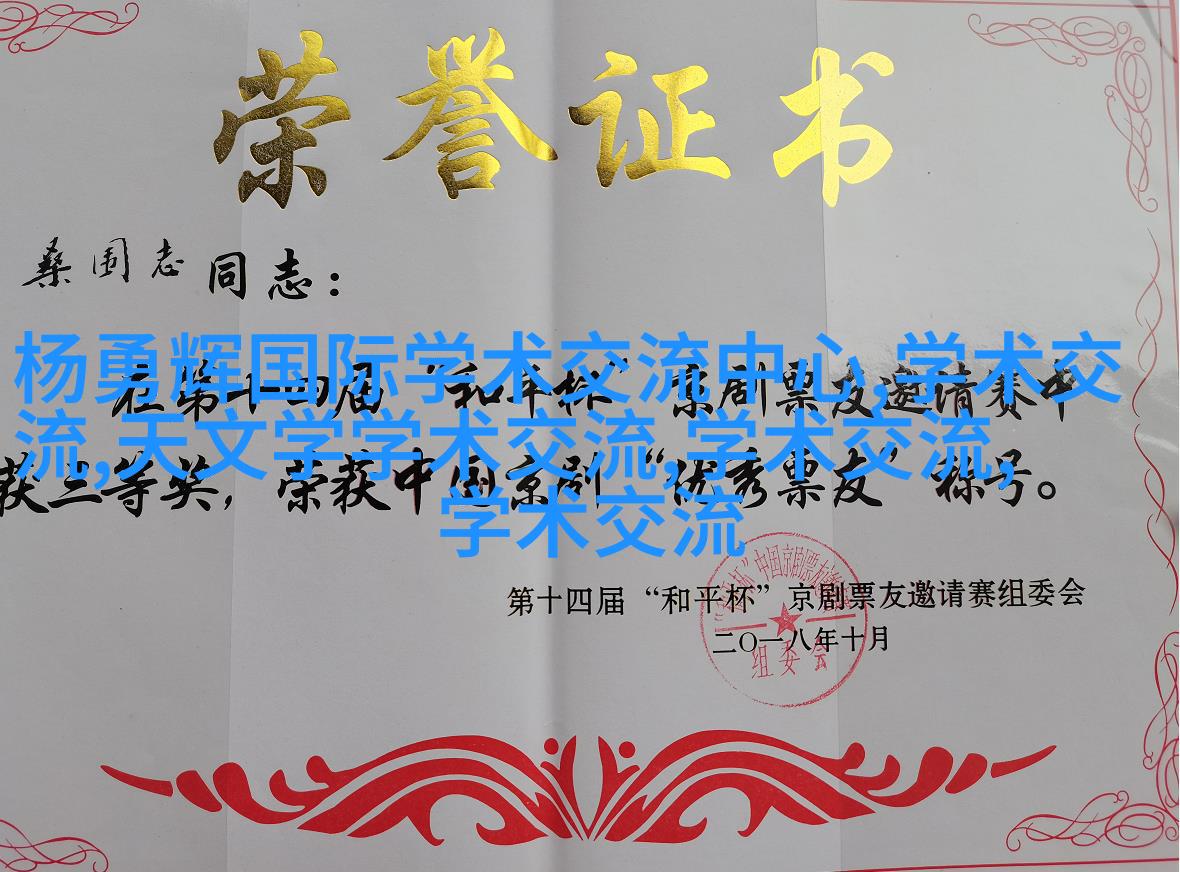 荣誉证书
桑国志同志：
杨勇辉国际学术交流中心,学术交
在第十四届“和平杯”京剧票友邀请赛中
流,天文学学术交流,学术交流,
获三等奖，荣获中国京剧“优秀票友”称号。
学术交流
第十四届“和平杯”京剧票友邀请赛组委会
二〇一八年十月
组委会